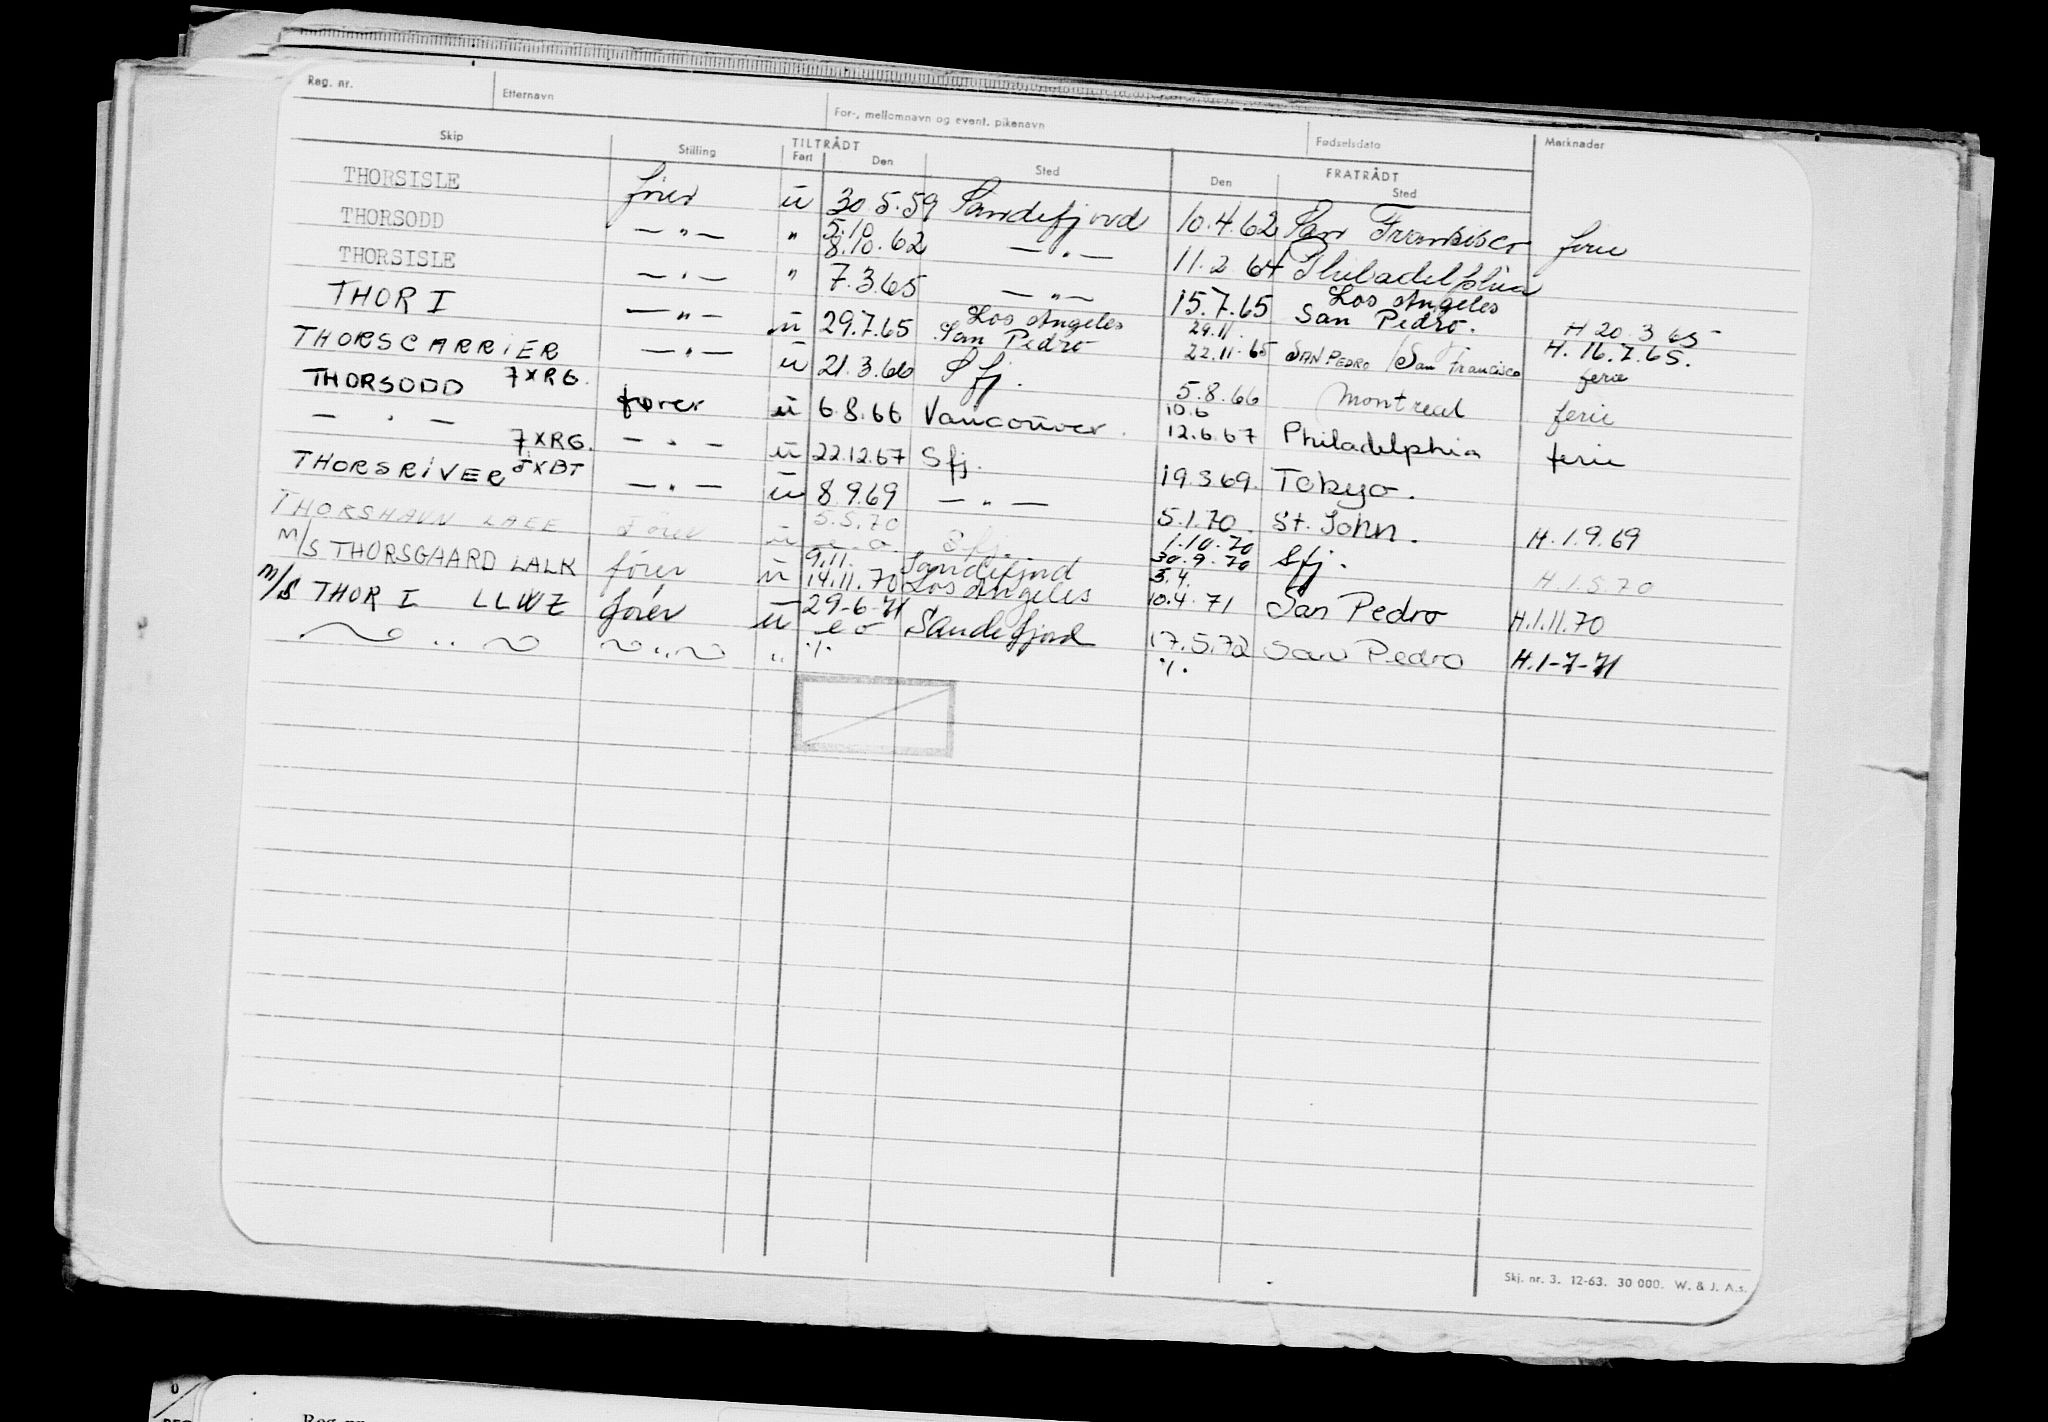 Reg. nr. Etternavn For-, mellomnavn og event. pikenavn Fødselsdato Merknader
Skip Stilling TILTRÅDT FRATRÅDT
Fart Den Sted Den Sted
THORSISLE fører u 30.5.59 Sandefjord 10.4.62 San Fransisco ferie
5.10
THORSODD — " — " 8.10.62 — " — 11.2.64 Philadelphia
THORSISLE — " — " 7.3.65 — " — 15.7.65 Los Angeles San Pedro. H 20.3.65
THOR I — " — u 29.7.65 Los Angeles San Pedro 29.11. 22.11.65 SAN PEDRO / San Francisco H. 16.7.65. ferie
THORSCARRIER — " — u 21.3.66 Sfj. 5.8.66 Montreal ferie
THORSODD 7XRG. fører u 6.8.66 Vancouver. 10.6 12.6.67 Philadelphia ferie
— " — 7XRG. — " — u 22.12.67 Sfj. 19.3.69. Tokyo.
THORSRIVER 5XBT — " — u 8.9.69 — " — 5.1.70. St. John. H.1.9.69
THORSHAVN Fører u 5.5.70 Sfj. 1.10.70 30.9.70 Sfj. H.1.5.70
M/S THORSGAARD LALK fører u 9.11. 14.11.70 Sandefjord Los Angeles 3.4. 10.4.71 San Pedro H.1.11.70
M/S THOR I LLWZ fører u 29-6-71 Sandefjord 17.5.72 San Pedro H.1-7-71
" " " ./. ./.
Skj. nr. 3. 12-63. 30 000. W. & J. A.s.
Reg. nr.